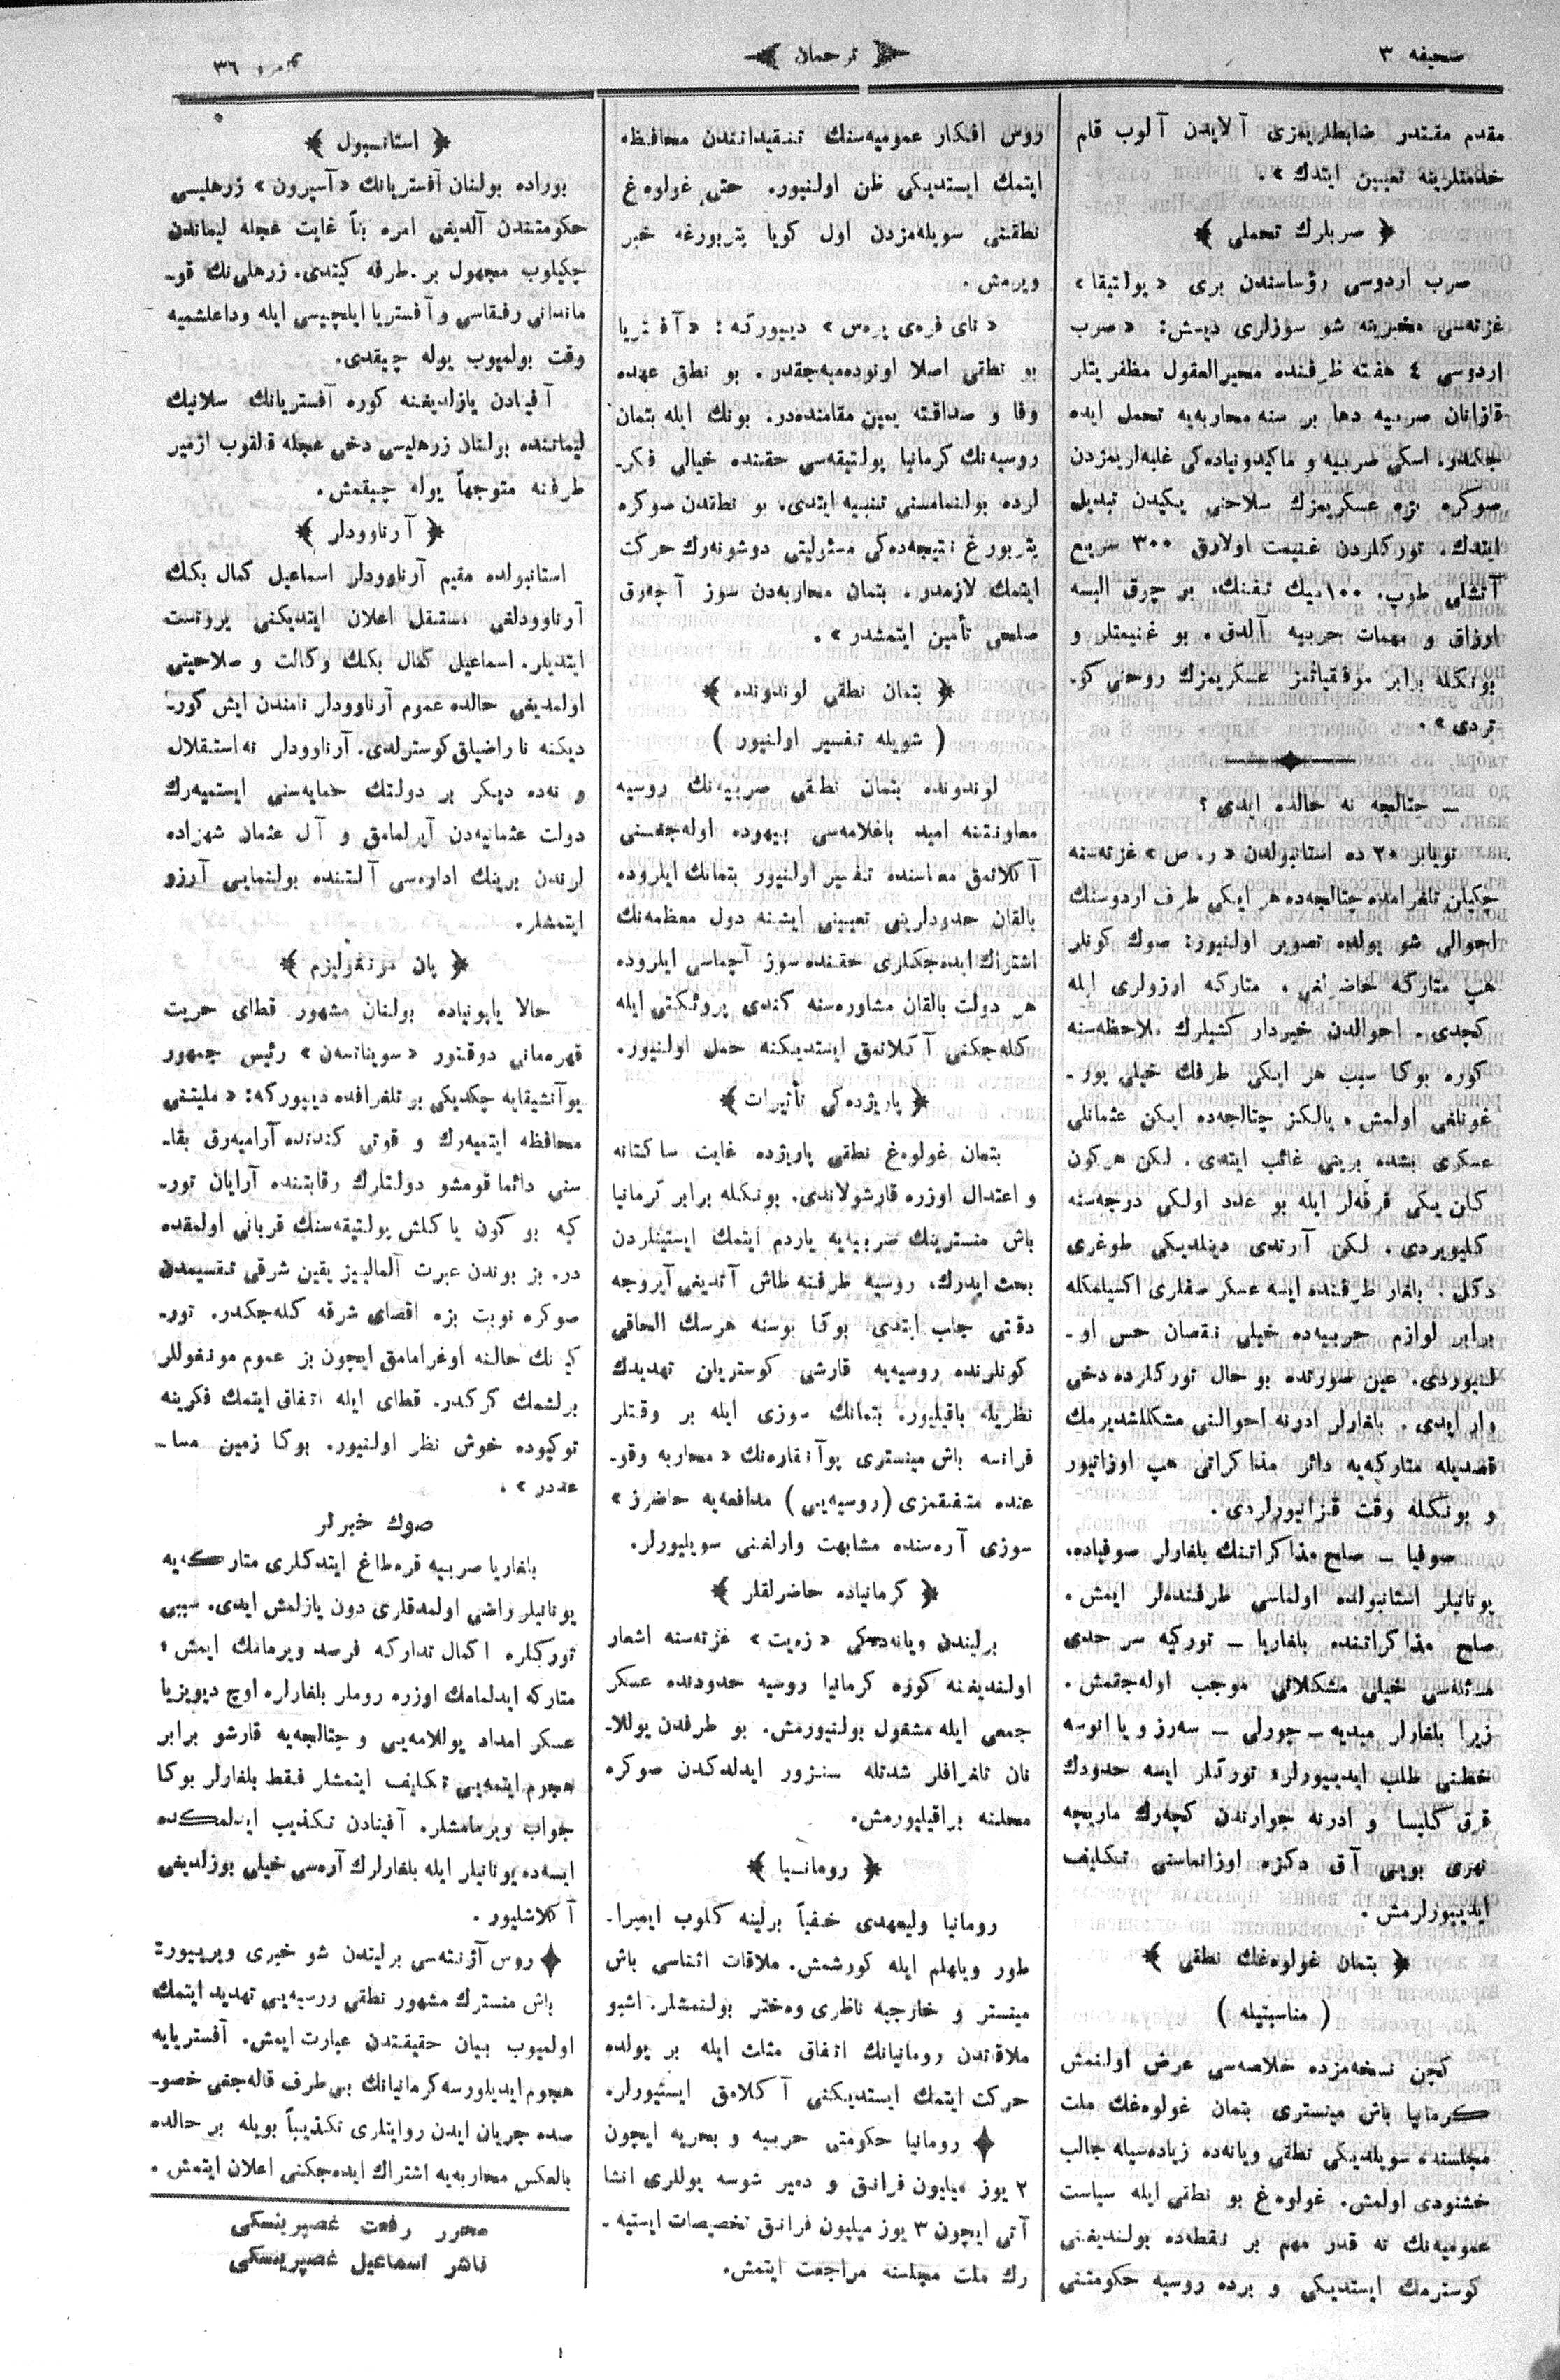 صحیفه ٣
ترجمان
نمرو ٣٦
مقدم مقتدر ضابطلریمزی آلایدن آلوب قلم
خدمتلرینه تعیین ایتدك» .
﴿ صربلرك تحملی ﴾
صرب اردوسی رؤساسندن بری «پولتیقا»
غزته‌سی مخبرینه شو سوزلری دیمش: «صرب
اردوسی ٤ هفته ظرفنده محیرالعقول مظفریتلر
قازانان صربیه دها بر سنه محاربه‌یه تحمل ایده
جكدر. اسكی صربیه و ماكیدونیاده‌كی غلبه‌لریمزدن
صوكره بزه عسكریمزك سلاحنی یكیدن تبدیل
ایتدك. توركلردن غنیمت اولارق ٣٠٠ سریع
آتشلی طوپ، ١٠٠ بیك تفنك، بر چوق البسه
ارزاق و مهمات حربیه آلدق. بو غنیمتلر و
بونكله برابر موفقیاتمز عسكریمزك روحنی كو-
تردی» .
— چتالجه نه حالده ایدی ؟
نویابر ٢٠ ده استانبولدن «ر. ص» غزته‌سنه
چكیلن تلغرامده چتالجه‌ده هر ایكی طرف اردوسنك
احوالی شو یولده تصویر اولنیور: صوك كونلر
هپ متاركه خاضرلغی، متاركه ارزولری ایله
كچدی. احوالدن خبردار كشیلرك ملاحظه‌سنه
كوره بوكا سبب هر ایكی طرفك خیلی یور-
غونلغی اولمش. یالكز چتالجه‌ده ایكن عثمانلی
عسكری بشده برینی غائب ایتدی. لكن هركون
كلن یكی فرقه‌لر ایله بو عدد اولكی درجه‌سنه
كلیویردی. لكن آرتدی دینلدیكی طوغری
دكل. بلغار طرفنده ایسه عسكر صفلری اكسیلمكله
برابر لوازم حربیه‌ده خیلی نقصان حس او-
لنیوردی. عین صورتده بو حال توركلرده دخی
وار ایدی. بلغارلر ادرنه احوالنی مشكللشدیرمك
قصدیله متاركه‌یه دائر مذاكراتی هپ اوزاتیور
و بونكله وقت قزانیورلردی.
صوفیا — صلح مذاكراتنك بلغارلر صوفیاده،
یونانیلر استانبولده اولماسی طرفنده‌لر ایمش.
صلح مذاكراتنده بلغاریا — توركیه سرحدی
مسئله‌سی خیلی مشكلاتی موجب اوله‌جقمش.
زیرا بلغارلر میدیه — چورلی — سه‌رز و یا انوسه
خطنی طلب ایدییورلر. توركلر ایسه حدودك
قرق كلیسا و ادرنه جوارندن كچه‌رك ماریچه
نهری بویی آق دكزه اوزانماسنی تكلیف
ایدییورلرمش.
﴿ بتمان غولوه‌غك نطقی ﴾
( مناسبتیله )
كچن نسخه‌مزده خلاصه‌سی عرض اولنمش
كرمانیا باش مینستری بتمان غولوه‌غك ملت
مجلسنده سویلدیكی نطقی ویانه‌ده زیاده‌سیله جالب
خشنودی اولمش. غولوه‌غ بو نطقی ایله سیاست
عمومیه‌نك نه قدر مهم بر نقطه‌ده بولندیغنی
كوسترمك ایستدیكی و برده روسیه حكومتنی
روس افكار عمومیه‌سنك تنقیداتندن محافظه
ایتمك ایستدیكی ظن اولنیور. حتی غولوه‌غ
نطقنی سویله‌مزدن اول كویا پتربورغه خبر
ویرمش .
«نای فره‌ی پره‌س» دییوركه: «آفتریا
بو نطقی اصلا اونوده‌میه‌جقدر. بو نطق عهده
وفا و صداقته یمین مقامنده‌در. بونك ایله بتمان
روسیه‌نك كرمانیا پولتیقه‌سی حقنده خیالی فكر-
لرده بولنمامسنی تنبیه ایتدی. بو نطقدن صوكره
پتربورغ نتیجه‌ده‌كی مسئولیتی دوشونه‌رك حركت
ایتمك لازمدر. بتمان محاربه‌دن سوز آچه‌رق
صلحی تأمین ایتمشدر» .
﴿ بتمان نطقی لوندونده ﴾
( شویله تفسیر اولنیور )
لوندونده بتمان نطقی صربیه‌نك روسیه
معاونتنه امید باغلامه‌سی بیهوده اوله‌جغنی
آكلاتمق معناسنده تفسیر اولنیور بتمانك ایلروده
بالقان حدودلرینی تعیینی ایشنه دول معظمه‌نك
اشتراك ایده‌جكلری حقنده سوز آچماسی ایلروده
هر دولت بالقان مشاوره‌سنه كندی پروئكتی ایله
كله‌جكنی آكلاتمق ایستدیكنه حمل اولنیور.
﴿ پاریژده‌كی تأثیرات ﴾
بتمان غولوه‌غ نطقی پاریژده غایت ساكتانه
و اعتدال اوزره قارشولاندی. بونكله برابر كرمانیا
باش منسترینك صربیه‌یه یاردم ایتمك ایستینلردن
بحث ایدرك، روسیه طرفنه طاش آتدیغی آیروجه
دقتی جلب ایتدی. بوكا بوسنه هرسك الحاقی
كونلرنده روسیه‌یه قارشی كوستریلن تهدیدك
نظریله باقیلیور. بتمانك سوزی ایله بر وقتلر
فرانسه باش مینستری پوآنقاره‌نك «محاربه وقو-
عنده متفقمزی (روسیه‌یی) مدافعه‌یه حاضرز»
سوزی آره‌سنده مشابهت وارلغنی سویلیورلر.
﴿ كرمانیاده حاضرلقلر ﴾
برلیندن ویانه‌ده‌كی «زه‌یت» غزته‌سنه اشعار
اولندیغنه كوره كرمانیا روسیه حدودنده عسكر
جمعی ایله مشغول بولنیورمش. بو طرفدن یوللا-
نان تلغرافلر شدتله سنزور ایدلدكدن صوكره
محلنه براقیلیورمش.
﴿ رومانیا ﴾
رومانیا ولیعهدی خفیاً برلینه كلوب ایمپرا-
طور ویلهلم ایله كورشمش. ملاقات اثناسی باش
مینستر و خارجیه ناظری وه‌ختر بولنمشلر. اشبو
ملاقاتدن رومانیانك اتفاق مثلث ایله بر یولده
حركت ایتمك ایستدیكنی آكلامق ایستیورلر.
رومانیا حكومتی حربیه و بحریه ایچون
٢ یوز میلیون فرانق و دمیر شوسه یوللری انشا
آتی ایچون ٣ یوز میلیون فرانق تخصیصات ایستیه-
رك ملت مجلسنه مراجعت ایتمش.
﴿ استانبول ﴾
بوراده بولنان آفستریانك «آسپرون» زرهلیسی
حكومتندن آلدیغی امره بناً غایت عجله لیماندن
چكیلوب مجهول بر طرفه كیتدی. زرهلی‌نك قو-
ماندانی رفقاسی و آفستریا ایلچیسی ایله وداعلشمیه
وقت بولمیوب یوله چیقدی.
آفینادن یازلدیغنه كوره آفستریانك سلانیك
لیماننده بولنان زرهلیسی دخی عجله قالقوب ازمیر
طرفنه متوجهاً یوله چیقمش.
﴿ آرناوودلر ﴾
استانبولده مقیم آرناوودلر اسماعیل كمال بكك
آرناوودلغی مستقل اعلان ایتدیكنی پروتست
ایتدیلر. اسماعیل كمال بكك وكالت و صلاحیتی
اولمدیغی حالده عموم آرناوودلر نامندن ایش كور-
دیكنه ناراضیلق كوسترلدی. آرناوودلر نه‌استقلال
و نه‌ده دیكر بر دولتك حمایه‌سنی ایستمیه‌رك
دولت عثمانیه‌دن آیرلمامق و آل عثمان شهزاده
لرندن برینك اداره‌سی آلتنده بولنمایی آرزو
ایتمشلر.
﴿ پان مونغولیزم ﴾
حالا یاپونیاده بولنان مشهور قطای حریت
قهرمانی دوقتور «سویناتسه‌ن» رئیس جمهور
یوآنشیقایه چكدیكی بر تلغرافده دییوركه: «ملیتنی
محافظه ایتمیه‌رك و قوتی كندنده آرامیه‌رق بقا-
سنی دائما قومشو دولتلرك رقابتنده آرایان تور-
كیه بو كون یاكلش پولتیقه‌سنك قربانی اولمقده
در. بز بوندن عبرت آلمالییز یقین شرقی تقسیمدن
صوكره نوبت بزه اقصای شرقه كله‌جكدر. تور-
كیه‌نك حالنه اوغرامامق ایچون بز عموم مونغوللر
برلشمك كركدر. قطای ایله اتفاق ایتمك فكرینه
توكیوده خوش نظر اولنیور. بوكا زمین مسا-
عددر» .
صوك خبرلر
بلغاریا صربیه قره‌طاغ ایتدكلری متاركه‌یه
یونانیلر راضی اولمدقلری دون یازلمش ایدی. سببی
توركلره اكمال تداركه فرصد ویرمامك ایمش؛
متاركه ایدلمامك اوزره روملر بلغارلره اوچ دیویزیا
عسكر امداد یوللامه‌یی و چتالجه‌یه قارشو برابر
هجوم ایتمه‌یی تكلیف ایتمشلر فقط بلغارلر بوكا
جواب ویرمامشلر. آفینادن تكذیب ایدلمكده
ایسه‌ده یونانیلر ایله بلغارلرك آره‌سی خیلی بوزلدیغی
آكلاشلیور .
روس آژنته‌سی برلیندن شو خبری ویرییور:
باش منسترك مشهور نطقی روسیه‌یی تهدید ایتمك
اولمیوب بیان حقیقتدن عبارت ایمش. آفستریایه
هجوم ایدیلورسه كرمانیانك بی‌طرف قاله‌جغی خصو-
صده جریان ایدن روایتلری تكذیباً بویله بر حالده
بالعكس محاربه‌یه اشتراك ایده‌جكنی اعلان ایتمش.
محرر رفعت غصپرینسكی
ناشر اسماعیل غصپرینسكی